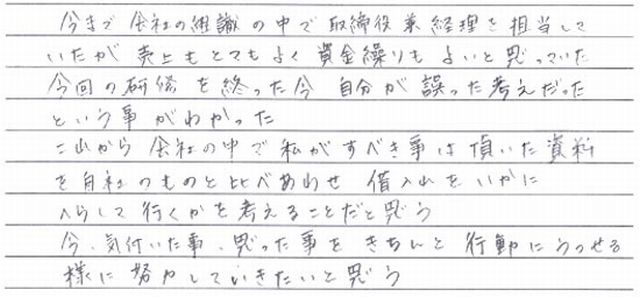 今まで 会社の組識の中で取締役兼経理を担当して
いたが 売上もとてもよく資金繰りもよいと思っていた
今回の研修を終った今 自分が誤った考えだった
という事がわかった
これから会社の中で私がすべき事は頂いた資料
を自社のものと比べあわせ 借入れをいかに
へらして行くかを考えることだと思う
今、気付いた事、思った事をきちんと行動にうつせる
様に努力していきたいと思う